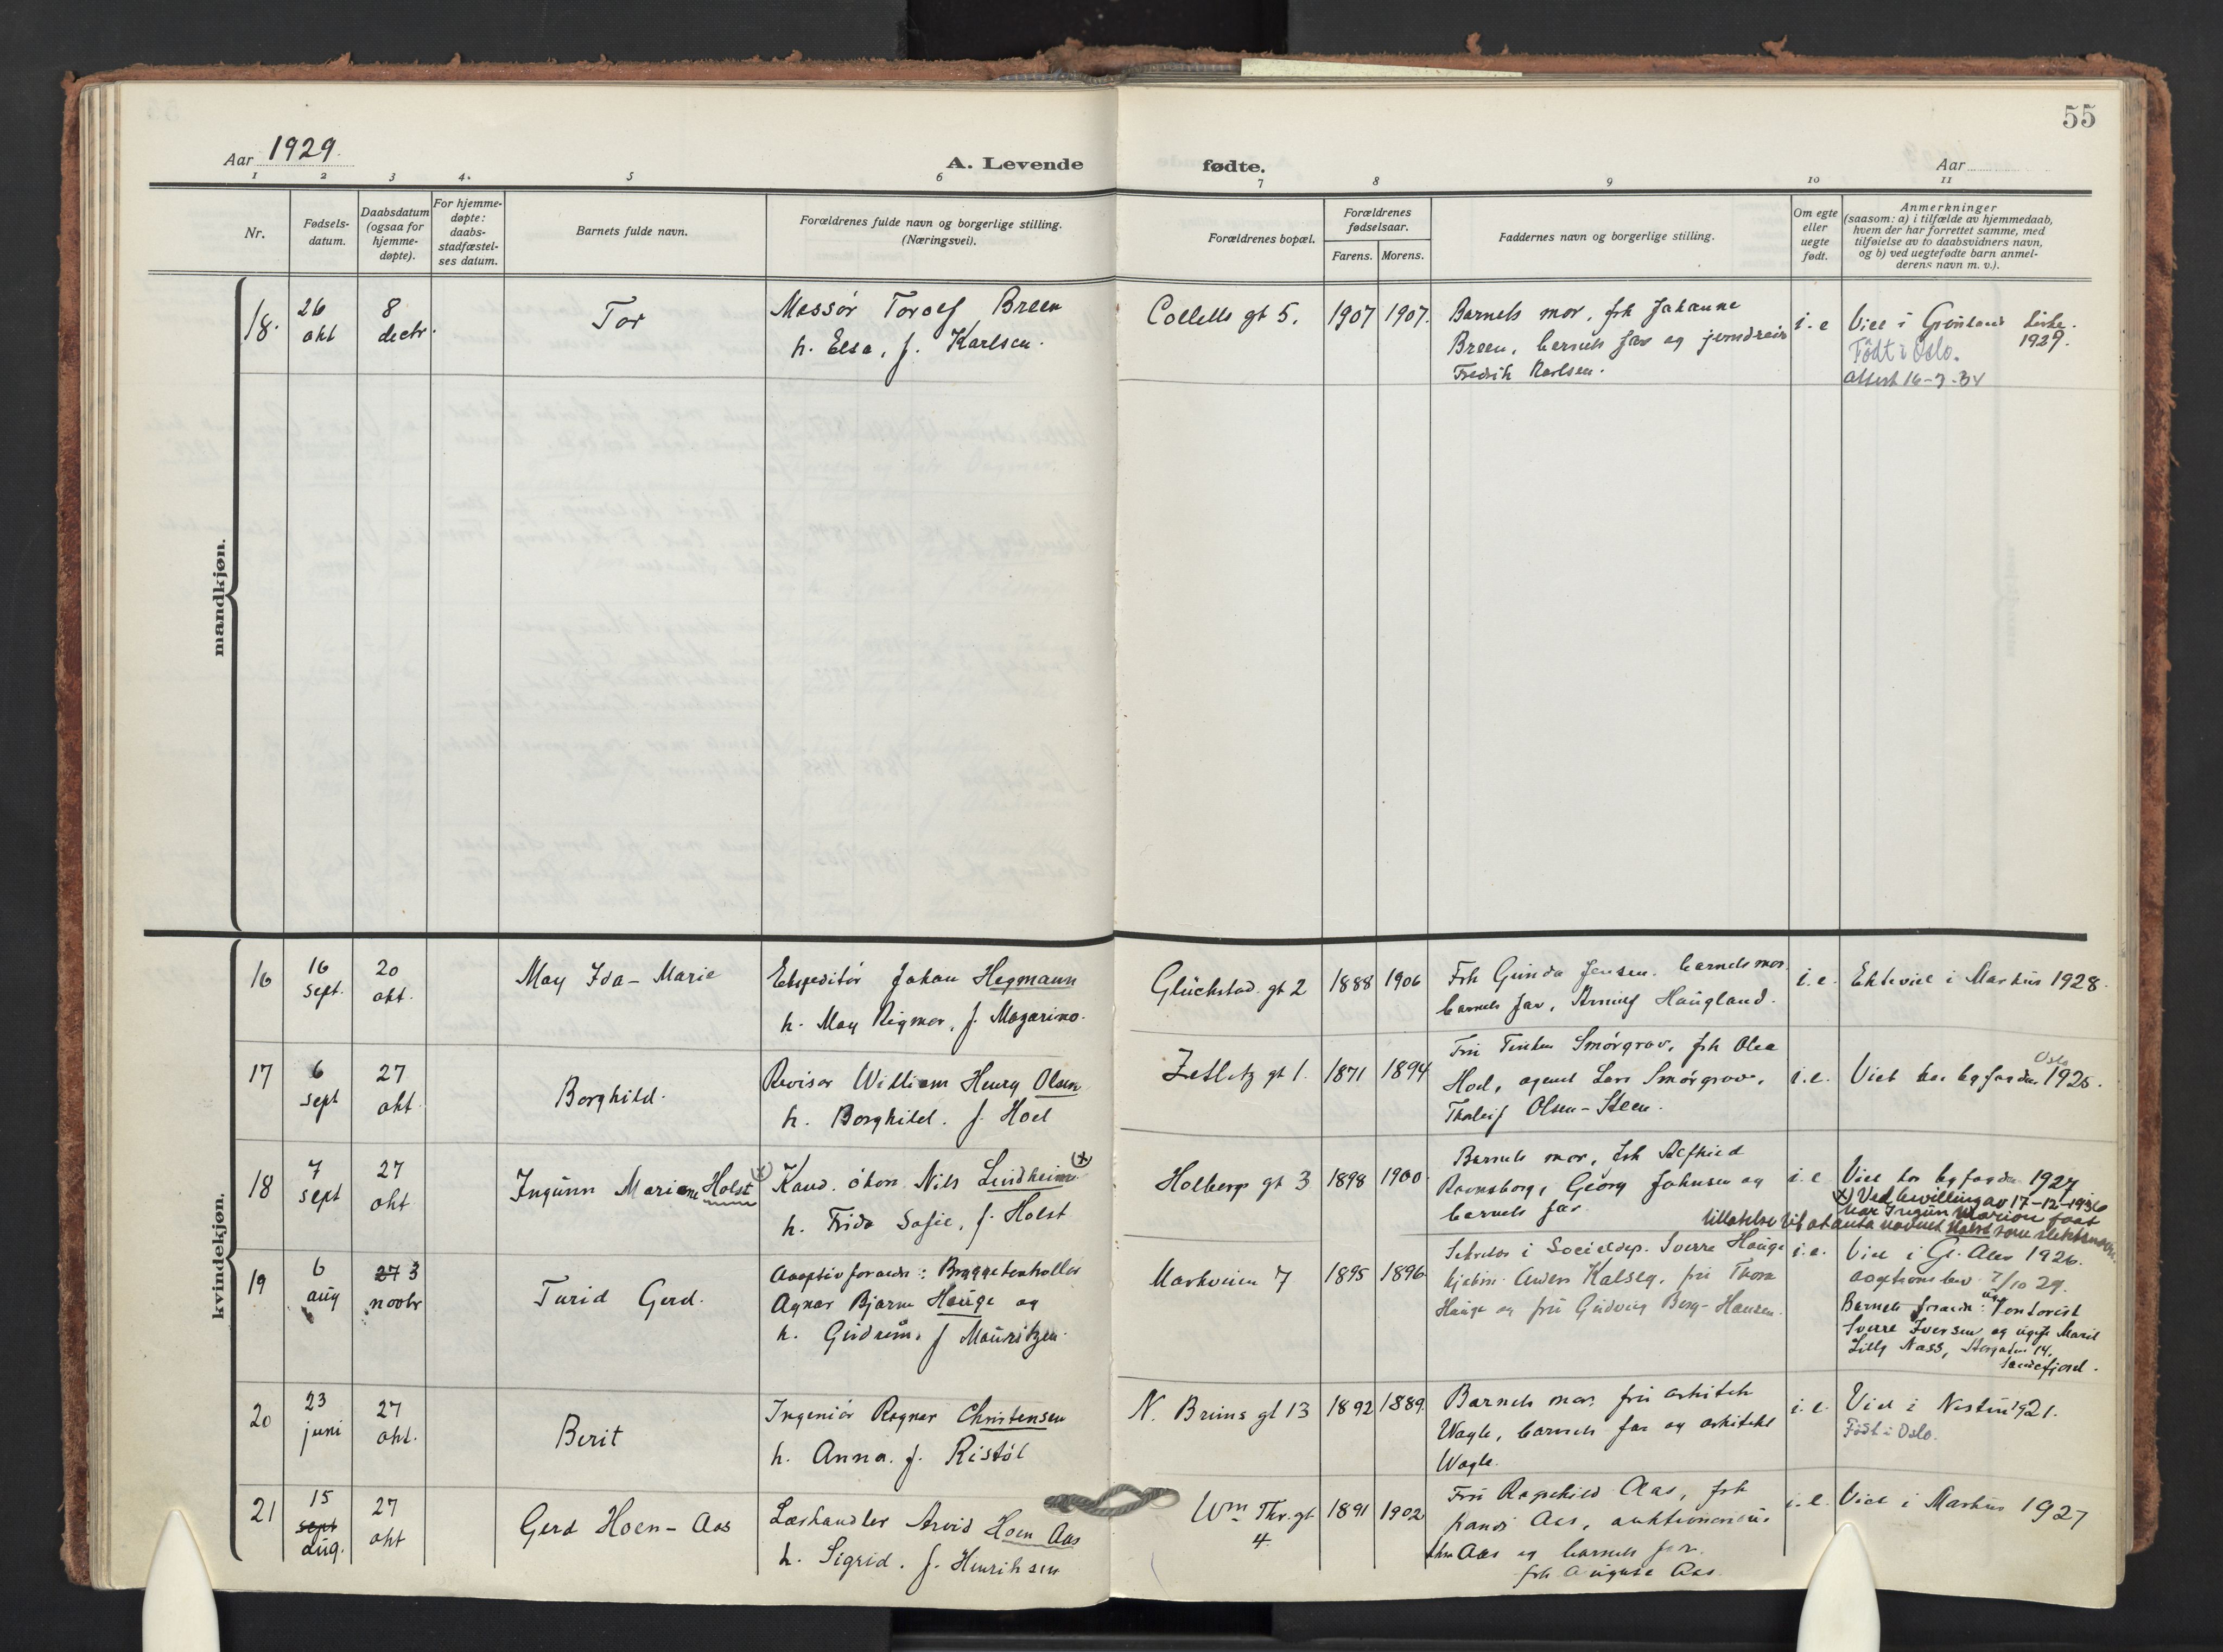 55
Aar 1929.
A. Levende fødte.
Aar
1 2 3 4. 5 6 7 8 9 10 11
Nr.
Fødsels-
datum.
Daabsdatum
(ogsaa for
hjemme-
døpte).
For hjemme-
døpte:
daabs-
stadfæstel-
ses datum.
Barnets fulde navn.
Forældrenes fulde navn og borgerlige stilling.
(Næringsvei).
Forældrenes bopæl.
Forældrenes
fødselsaar.
Farens. Morens.
Faddernes navn og borgerlige stilling.
Om egte
eller
uegte
født.
Anmerkninger
(saasom: a) i tilfælde av hjemmedaab,
hvem der har forrettet samme, med
tilføielse av to daabsvidners navn,
og b) ved uegtefødte barn anmel-
derens navn m. v.).
mandkjøn.
18.
26
okt
8
decbr.
Tor
Massør Toralf Breen
h. Elsa, f. Karlsen.
Colletts gt 5.
1907 1907.
Barnets mor, frk Johanne
Breen, barnets far og
Fredrik Karlsen.
i. e
Viet i Grønland kirke.
1929.
Født i Oslo.
Attest
kvindekjøn.
16
16
sept.
20
okt.
May Ida-Marie
Ekspeditør Johan Hegmann
h. May Rigmor, f. Mazarino.
Glückstad. gt 2
1888 1906
Frk Gunda Jensen. barnets mor.
barnets far, Haugland.
i. e.
Ektviet i Markus 1928.
17
6
sept
27
okt.
Borghild.
Revisor William Henry Olsen
h. Borghild. f. Hoel
Zetlitz gt 1.
1871 1894
Fru Smørgrav, frk Olea
Hoel, agent Lars Smørgrav,
Tholeif Olsen-Steen.
i. e.
Viet hos byfogden Oslo 1925.
18
7
sept
27
okt
Ingunn Marion Holst (x)
Kand. økon. Nils Lindheim (x)
h. Frida Sofie, f. Holst
Holbergs gt 3
1898 1900
Barnets mor, frk Alfhild
Ravnsborg, Georg Johnsen og
barnets far.
i. e
Viet hos byfogden 1927
(x) Ved bevilling av 17-12-1936
har Ingun Marion faat
tillatelse til at anta navnet Holst som slektsnavn.
19
6
aug
27 3
novbr
Turid Gerd.
Adoptivforældre:
Agnar Bjarne Hauge og
h. Gudrun, f Mauritzen.
Markveien 7
1895 1896
Sekretær i Socialdep. Sverre Hauge
kjøbm. Kalseg, fru Thora
Hauge og fru Gudveig Berg-Hansen.
i. e.
Viet i Gl. Aker 1926.
adoptionsbev. 7/10 29.
Barnets foræld: ugift kontorist
Sverre Iversen og ugift Marit
Lilly Nass, Storgaten 14,
Sandefjord.
20
23
juni
27
okt.
Berit
Ingeniør Ragnar Christensen
h. Anna. f. Ristøl
N. Bruns gt 13
1892 1889.
Barnets mor. fru arkitekt
Wagle, barnets far og arkitekt
Wagle.
i. e.
Viet i 1921.
Født i Oslo.
21
15
sept
aug.
27
okt
Gerd Hoen-Aas
Lærhandler Arvid Hoen Aas
h. Sigrid. f. Henriksen
Wm Thr. gt
4.
1891 1902
Fru Ragnhild Aas, frk
Aas,
Aas og barnets far.
frk Augusta Aas.
i. e.
Viet i Markus 1927